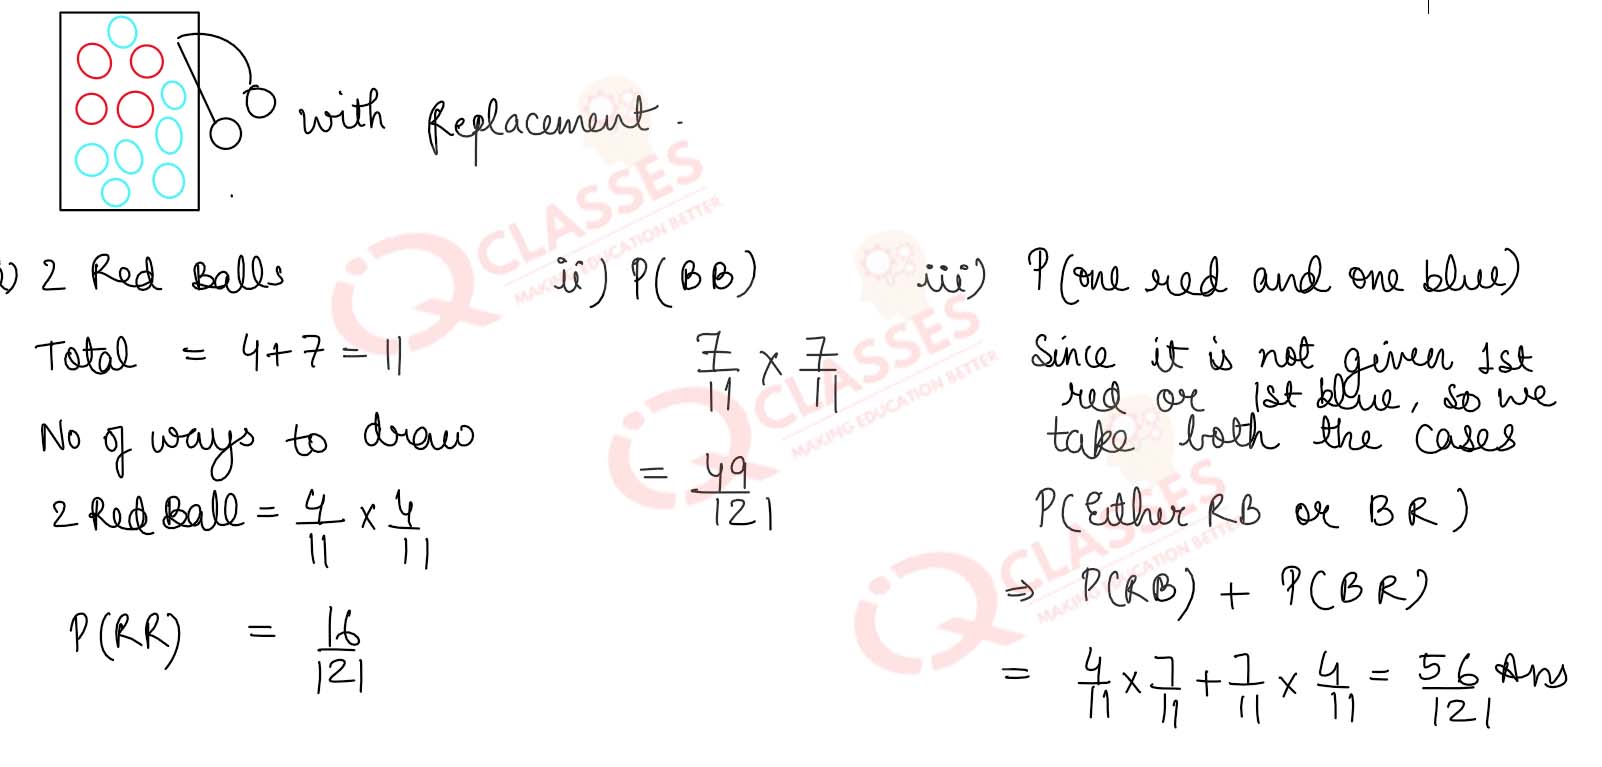 with Replacement.
i) 2 Red Balls
Total = 4+7 = 11
No of ways to draw
2 Red Ball = 4/11 × 4/11
P(RR) = 16/121
ii) P(BB)
7/11 × 7/11
= 49/121
iii) P(one red and one blue)
Since it is not given 1st
red or 1st blue, so we
take both the cases
P(Either RB or BR)
⇒ P(RB) + P(BR)
= 4/11 × 7/11 + 7/11 × 4/11 = 56/121 Ans
iQ CLASSES
MAKING EDUCATION BETTER
iQ CLASSES
MAKING EDUCATION BETTER
iQ CLASSES
MAKING EDUCATION BETTER